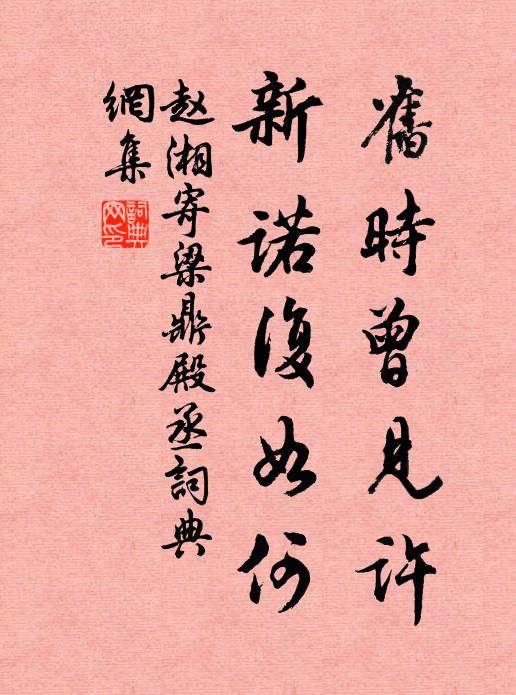 舊時曾見許
新諾復如何
赵湘寄梁鼎殿丞詞典
網集
詞典
网印